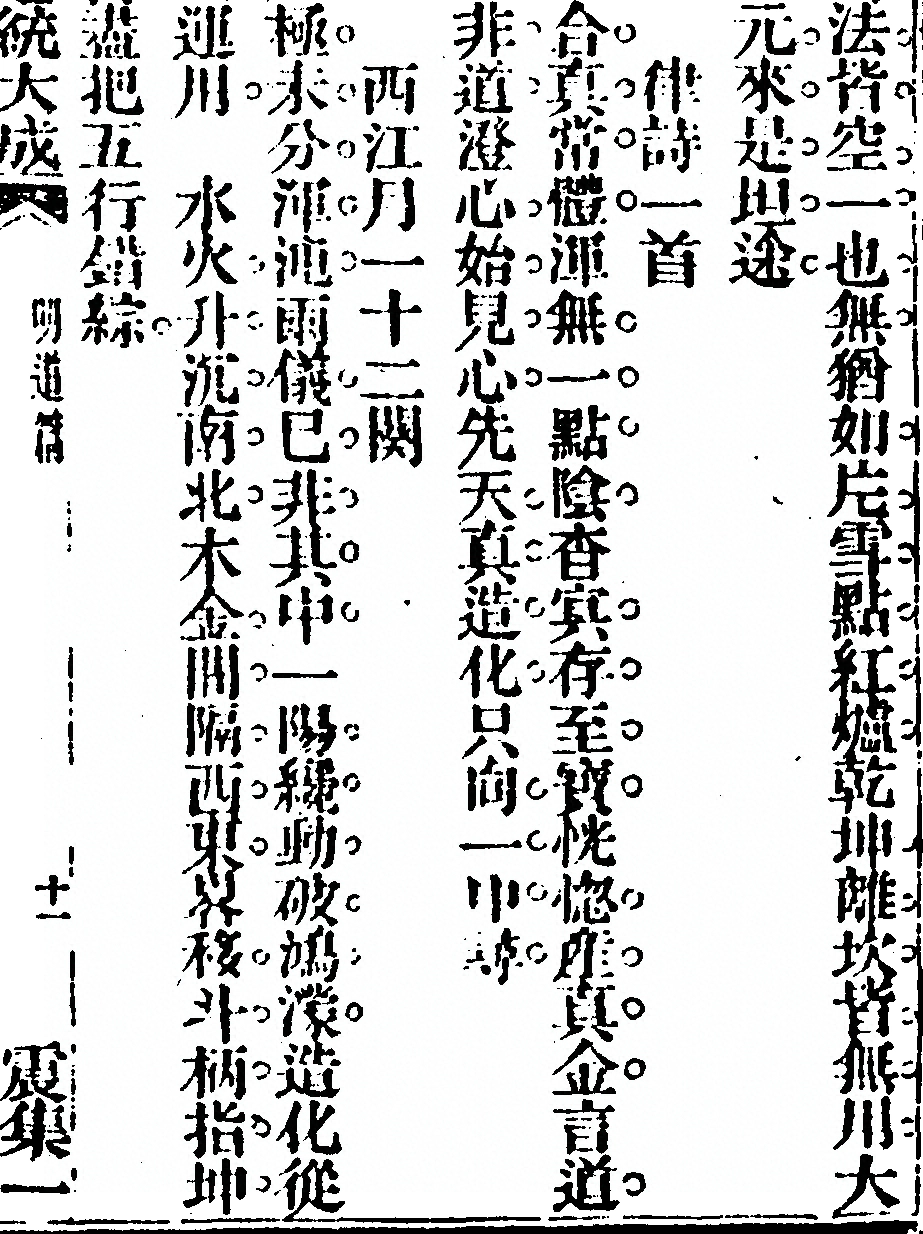 法皆空一也無猶如片雪點紅爐乾坤離坎皆無用大
元來是坦途
律詩一首
合真常體渾無一點陰杳冥存至寶恍惚產真金言道
非道澄心始見心先天真造化只向一中尋
西江月一十二闋
極未分渾沌兩儀已非其中一陽纔動破鴻濛造化從
運用　水火升沉南北木金間隔西東昇移斗柄指坤
盡把五行錯綜
統大成
明道篇
十一
震集一